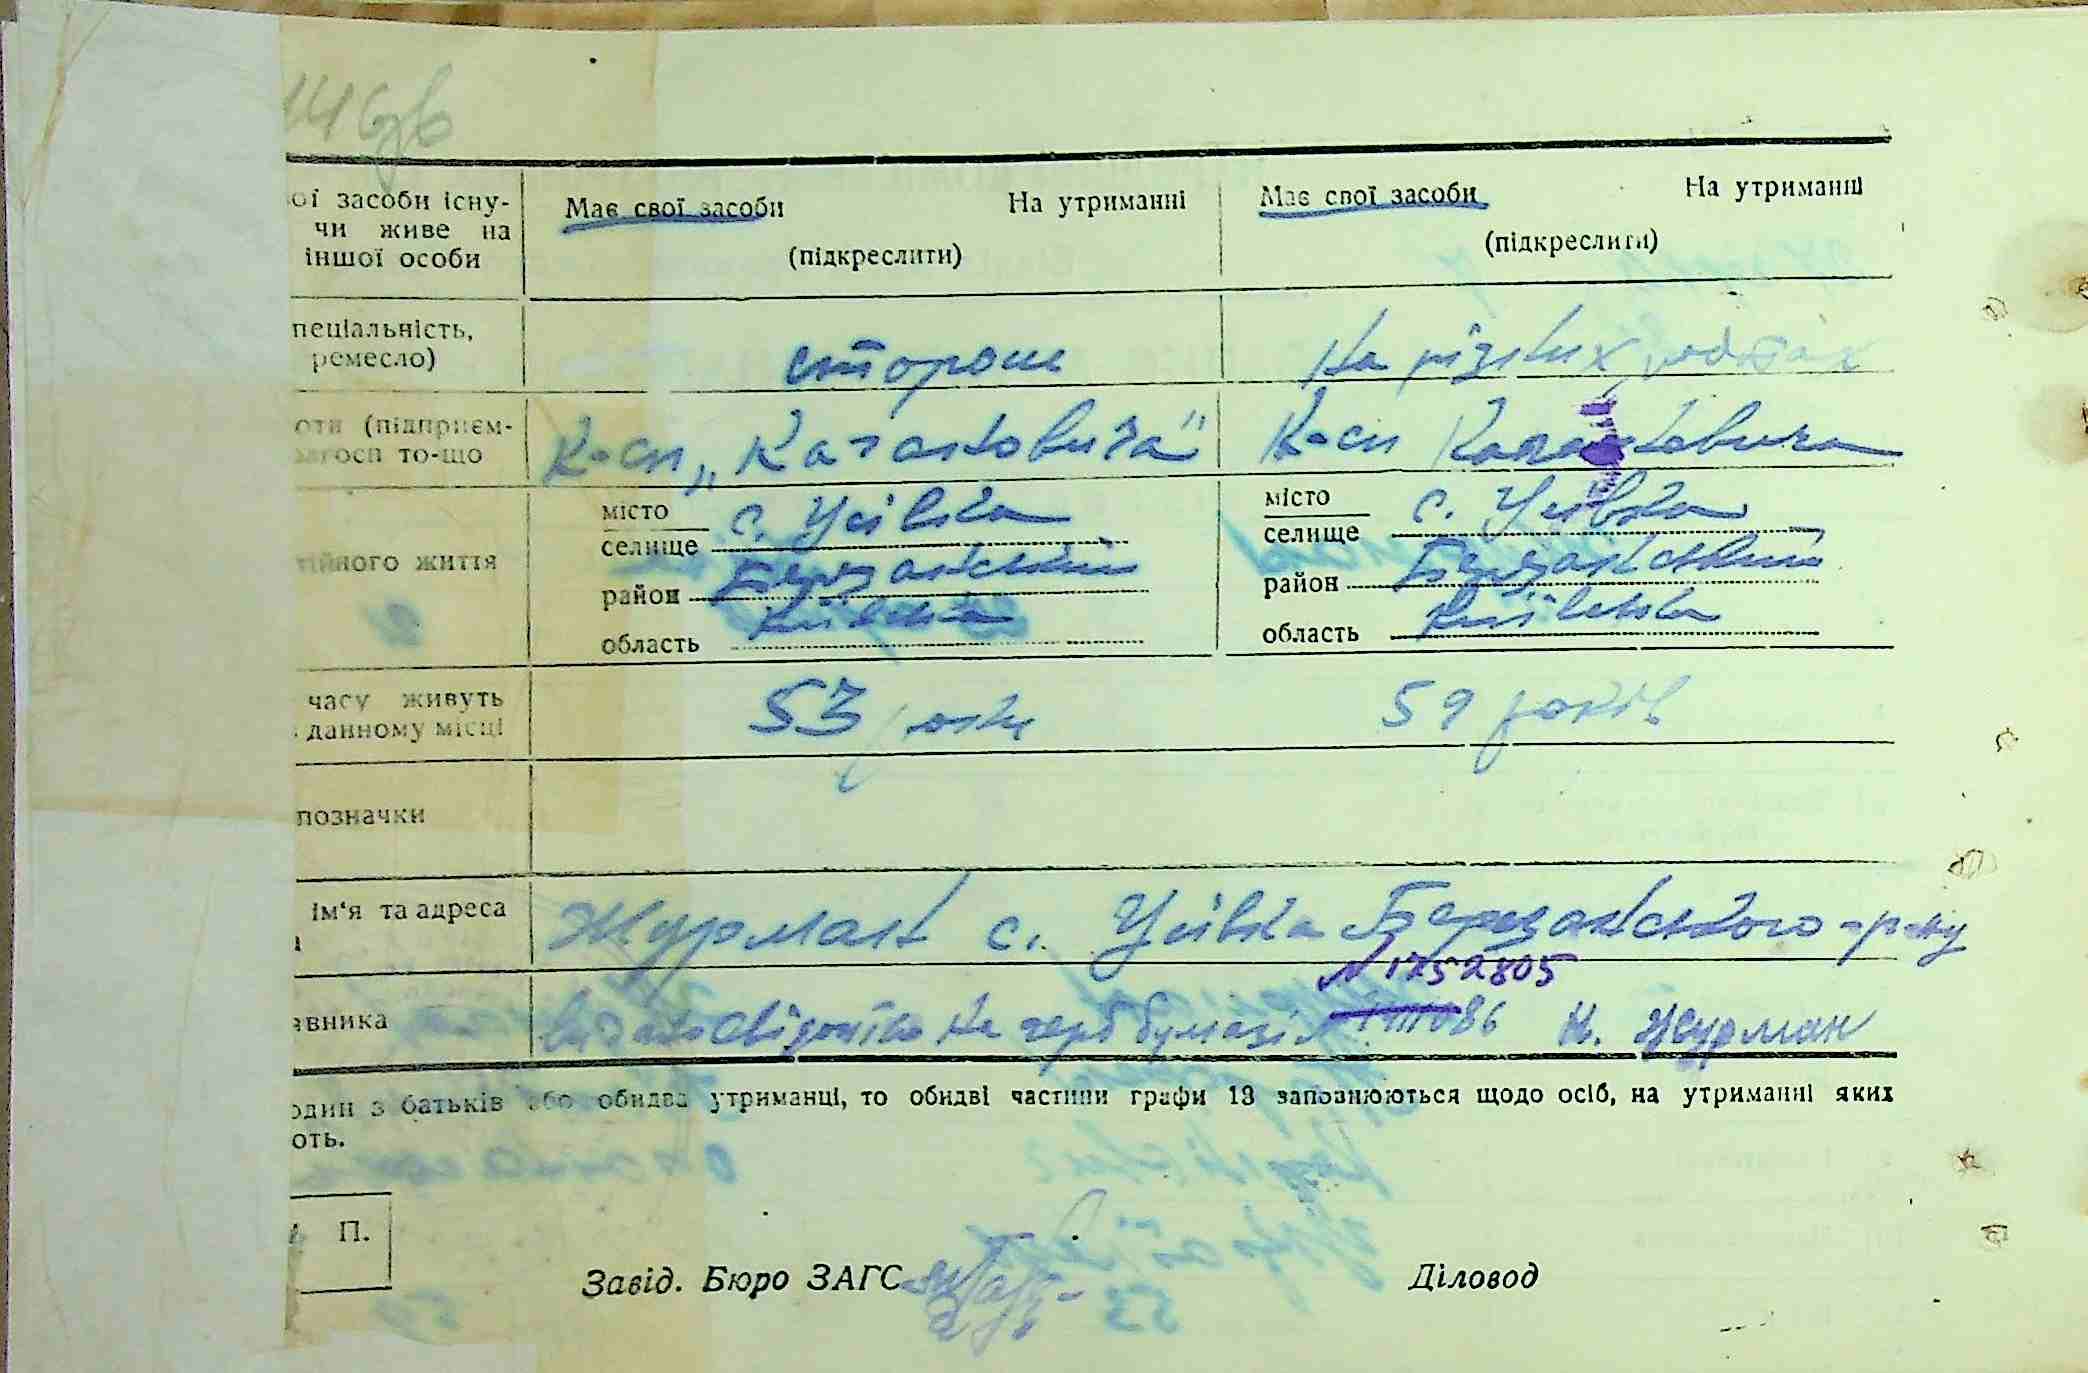 146зв
ої засоби існу- Має свої засоби На утриманні Має свої засоби На утриманні
чи живе на
іншої особи (підкреслити) (підкреслити)
пеціальність, сторож На різних роботах
ремесло)
оти (підприєм- К-сп „Кагановича" К-сп Кагановича
госп то-що
місто с. Усівка місто с. Усівка
селище селище
тійного життя район Березанський район Березанський
область Київська область Київська
часу живуть 53 роки 59 років
данному місці
позначки
ім'я та адреса Журман с. Усівка Березанського р-ну
№ 1752805
явника видано свідоцтво на герб бумазі 86 Н. Журман
один з батьків або обидва утриманці, то обидві частини графи 13 заповнюються щодо осіб, на утриманні яких
ють.
П.
Завід. Бюро ЗАГС Діловод